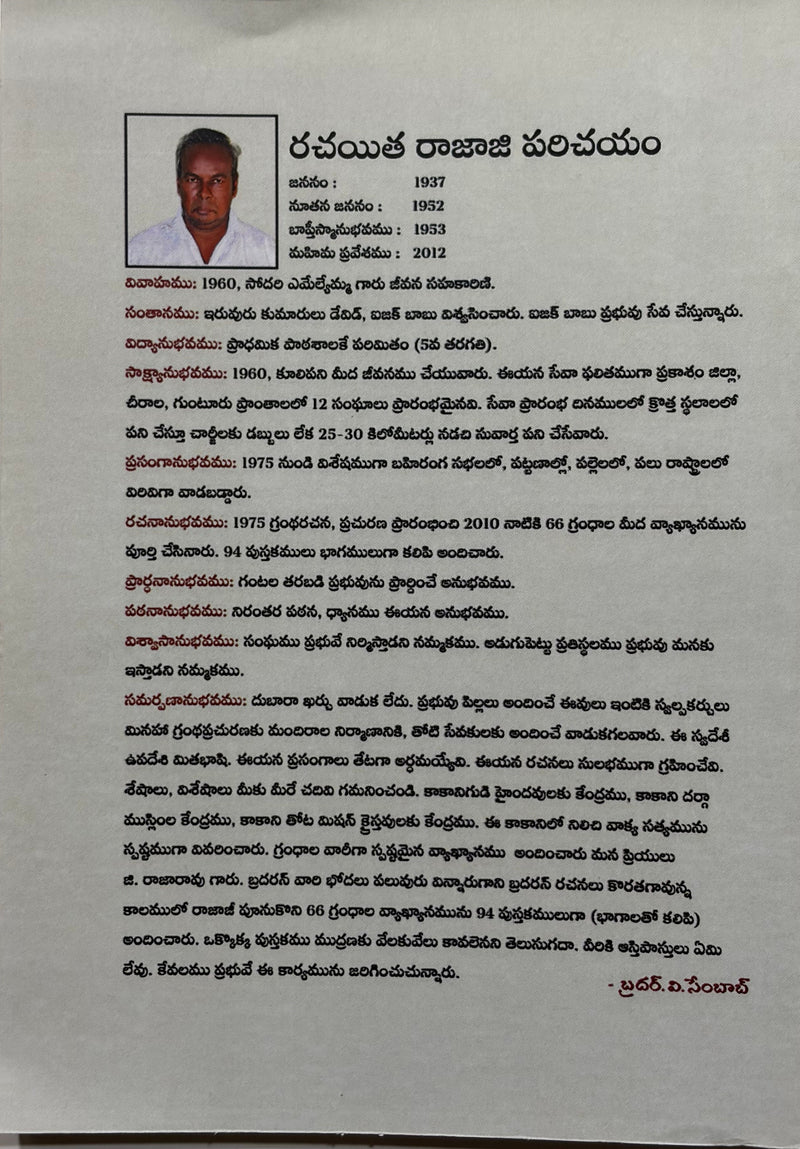 రచయిత రాజాజి పరిచయం
జననం : 1937
నూతన జననం : 1952
బాప్తీస్మానుభవము : 1953
మహిమ ప్రవేశము : 2012
వివాహము: 1960, సోదరి ఎమేల్యేమ్మ గారు జీవన సహకారిణి.
సంతానము: ఇరువురు కుమారులు డేవిడ్, ఐజక్ బాబు విశ్వసించారు. ఐజక్ బాబు ప్రభువు సేవ చేస్తున్నారు.
విద్యానుభవము: ప్రాధమిక పాఠశాలకే పరిమితం (5వ తరగతి).
సాక్ష్యానుభవము: 1960, కూలిపని మీద జీవనము చేయువారు. ఈయన సేవా ఫలితముగా ప్రకాశం జిల్లా,
చీరాల, గుంటూరు ప్రాంతాలలో 12 సంఘాలు ప్రారంభమైనవి. సేవా ప్రారంభ దినములలో క్రొత్త స్థలాలలో
పని చేస్తూ చార్జీలకు డబ్బులు లేక 25-30 కిలోమీటర్లు నడచి సువార్త పని చేసేవారు.
ప్రసంగానుభవము: 1975 నుండి విశేషముగా బహిరంగ సభలలో, పట్టణాల్లో, పల్లెలలో, పలు రాష్ట్రాలలో
విరివిగా వాడబడ్డారు.
రచనానుభవము: 1975 గ్రంథరచన, ప్రచురణ ప్రారంభించి 2010 నాటికి 66 గ్రంధాల మీద వ్యాఖ్యానమును
పూర్తి చేసినారు. 94 పుస్తకములు భాగములుగా కలిపి అందించారు.
ప్రార్ధనానుభవము: గంటల తరబడి ప్రభువును ప్రార్ధించే అనుభవము.
పఠనానుభవము: నిరంతర పఠన, ధ్యానము ఈయన అనుభవము.
విశ్వాసానుభవము: సంఘము ప్రభువే నిర్మిస్తాడని నమ్మకము. అడుగుపెట్టు ప్రతిస్థలము ప్రభువు మనకు
ఇస్తాడని నమ్మకము.
సమర్పణానుభవము: దుబారా ఖర్చు వాడుక లేదు. ప్రభువు పిల్లలు అందించే ఈవులు ఇంటికి స్వల్పకర్చులు
మినహా గ్రంథప్రచురణకు మందిరాల నిర్మాణానికి, తోటి సేవకులకు అందించే వాడుకగలవారు. ఈ స్వదేశీ
ఉపదేశి మితభాషి. ఈయన ప్రసంగాలు తేటగా అర్ధమయ్యేవి. ఈయన రచనలు సులభముగా గ్రహించేవి.
శేషాలు, విశేషాలు మీకు మీరే చదివి గమనించండి. కాకానిగుడి హైందవులకు కేంద్రము, కాకాని దర్గా
ముస్లింల కేంద్రము, కాకాని తోట మిషన్ క్రైస్తవులకు కేంద్రము. ఈ కాకానిలో నిలిచి వాక్య సత్యమును
స్పష్టముగా వివరించారు. గ్రంధాల వారీగా స్పష్టమైన వ్యాఖ్యానము అందించారు మన ప్రియులు
జి. రాజారావు గారు. బ్రదరన్ వారి భోదలు పలువురు విన్నారుగాని బ్రదరన్ రచనలు కొరతగావున్న
కాలములో రాజాజీ పూనుకొని 66 గ్రంధాల వ్యాఖ్యానమును 94 పుస్తకములుగా (భాగాలతో కలిపి)
అందించారు. ఒక్కొక్క పుస్తకము ముద్రణకు వేలకువేలు కావలెనని తెలుసుగదా. వీరికి ఆస్తిపాస్తులు ఏమి
లేవు. కేవలము ప్రభువే ఈ కార్యమును జరిగించుచున్నారు.
- బ్రదర్. వి. సేంబాబ్